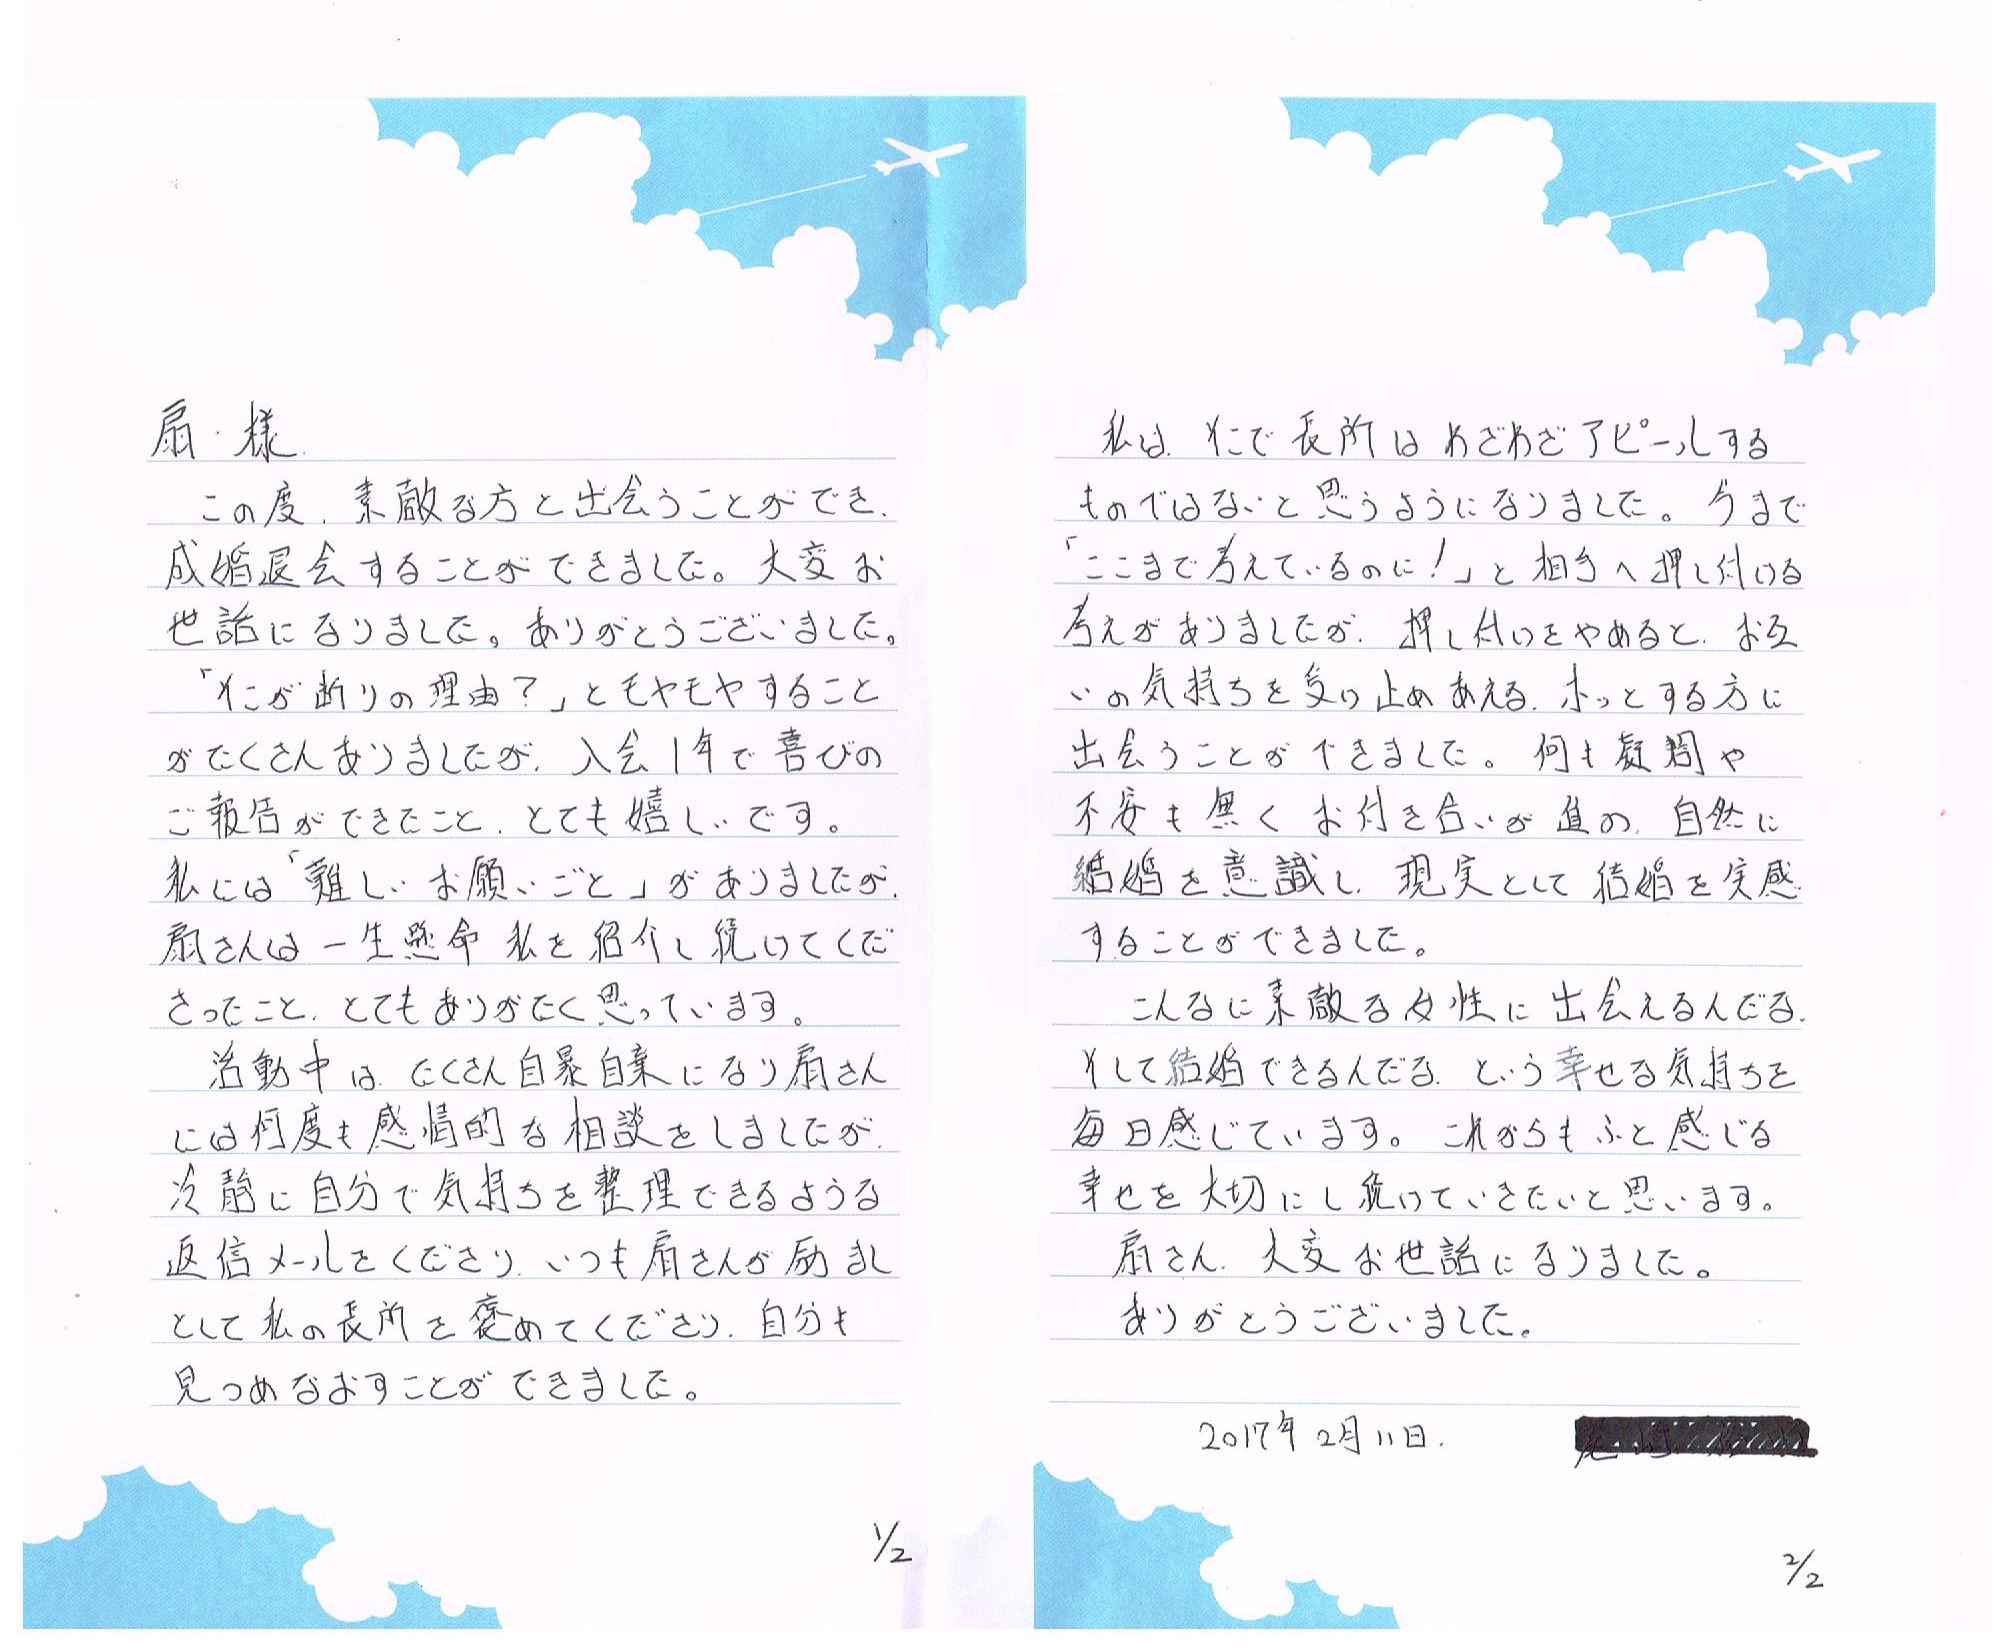 扇 様
この度、素敵な方と出会うことができ、
成婚退会することができました。大変お
世話になりました。ありがとうございました。
「そこが断りの理由？」とモヤモヤすること
がたくさんありましたが、入会1年で喜びの
ご報告ができたこと、とても嬉しいです。
私には「難しいお願いごと」がありましたが、
扇さんは一生懸命私を紹介し続けてくだ
さったこと、とてもありがたく思っています。
活動中は、たくさん自暴自棄になり扇さん
には何度も感情的な相談をしましたが、
冷静に自分で気持ちを整理できるような
返信メールをくださり、いつも扇さんが励まし
として私の長所を褒めてくださり、自分も
見つめなおすことができました。
1/2
私は、そこで長所はわざわざアピールする
ものではないと思うようになりました。今まで
「ここまで考えているのに！」と相手へ押し付ける
考えがありましたが、押し付けをやめると、お互
いの気持ちを受け止めあえる、ホッとする方に
出会うことができました。何も疑問や
不安も無くお付き合いが進み、自然に
結婚を意識し、現実として結婚を実感
することができました。
こんなに素敵な女性に出会えるんだな、
そして結婚できるんだな、という幸せな気持ちを
毎日感じています。これからもふと感じる
幸せを大切にし続けていきたいと思います。
扇さん、大変お世話になりました。
ありがとうございました。
2017年2月11日.
2/2